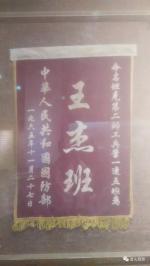 命名坦克第二师工兵营一连五班为
王杰班
中華人民共和國國防部
一九六五年十一月二十七日